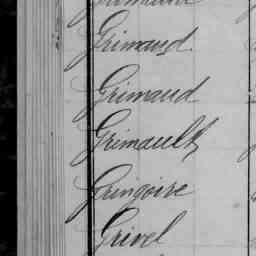 Grimaud.
Grimaud
Grimault
Gringoire
Grivel